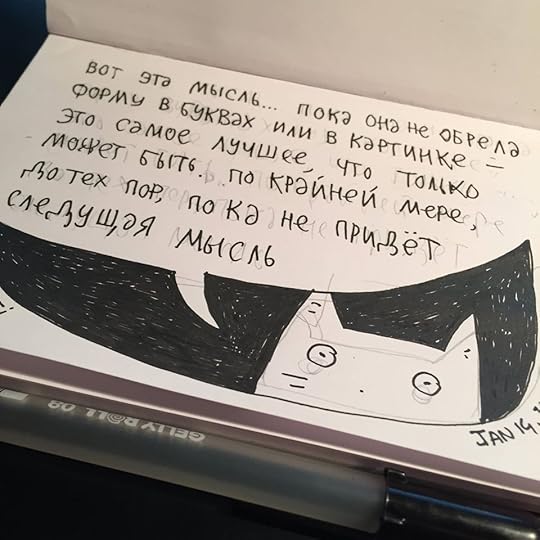 вот эта мысль... пока она не обрела
форму в буквах или в картинке —
это самое лучшее что только
может быть.. по крайней мере,
до тех пор, пока не придёт
следущая мысль
JAN 14,
GELLY ROLL 08